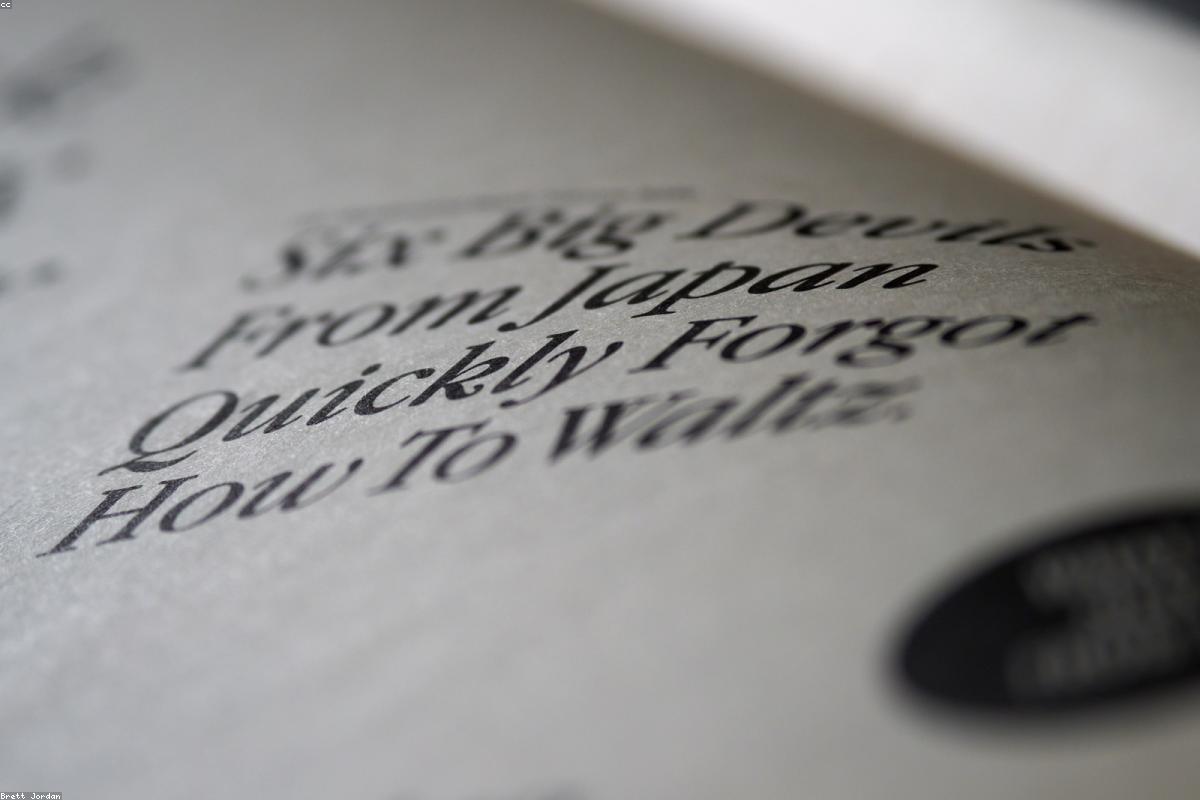 cc
Six Big Devils
From Japan
Quickly Forgot
How To Waltz.
Brett Jordan